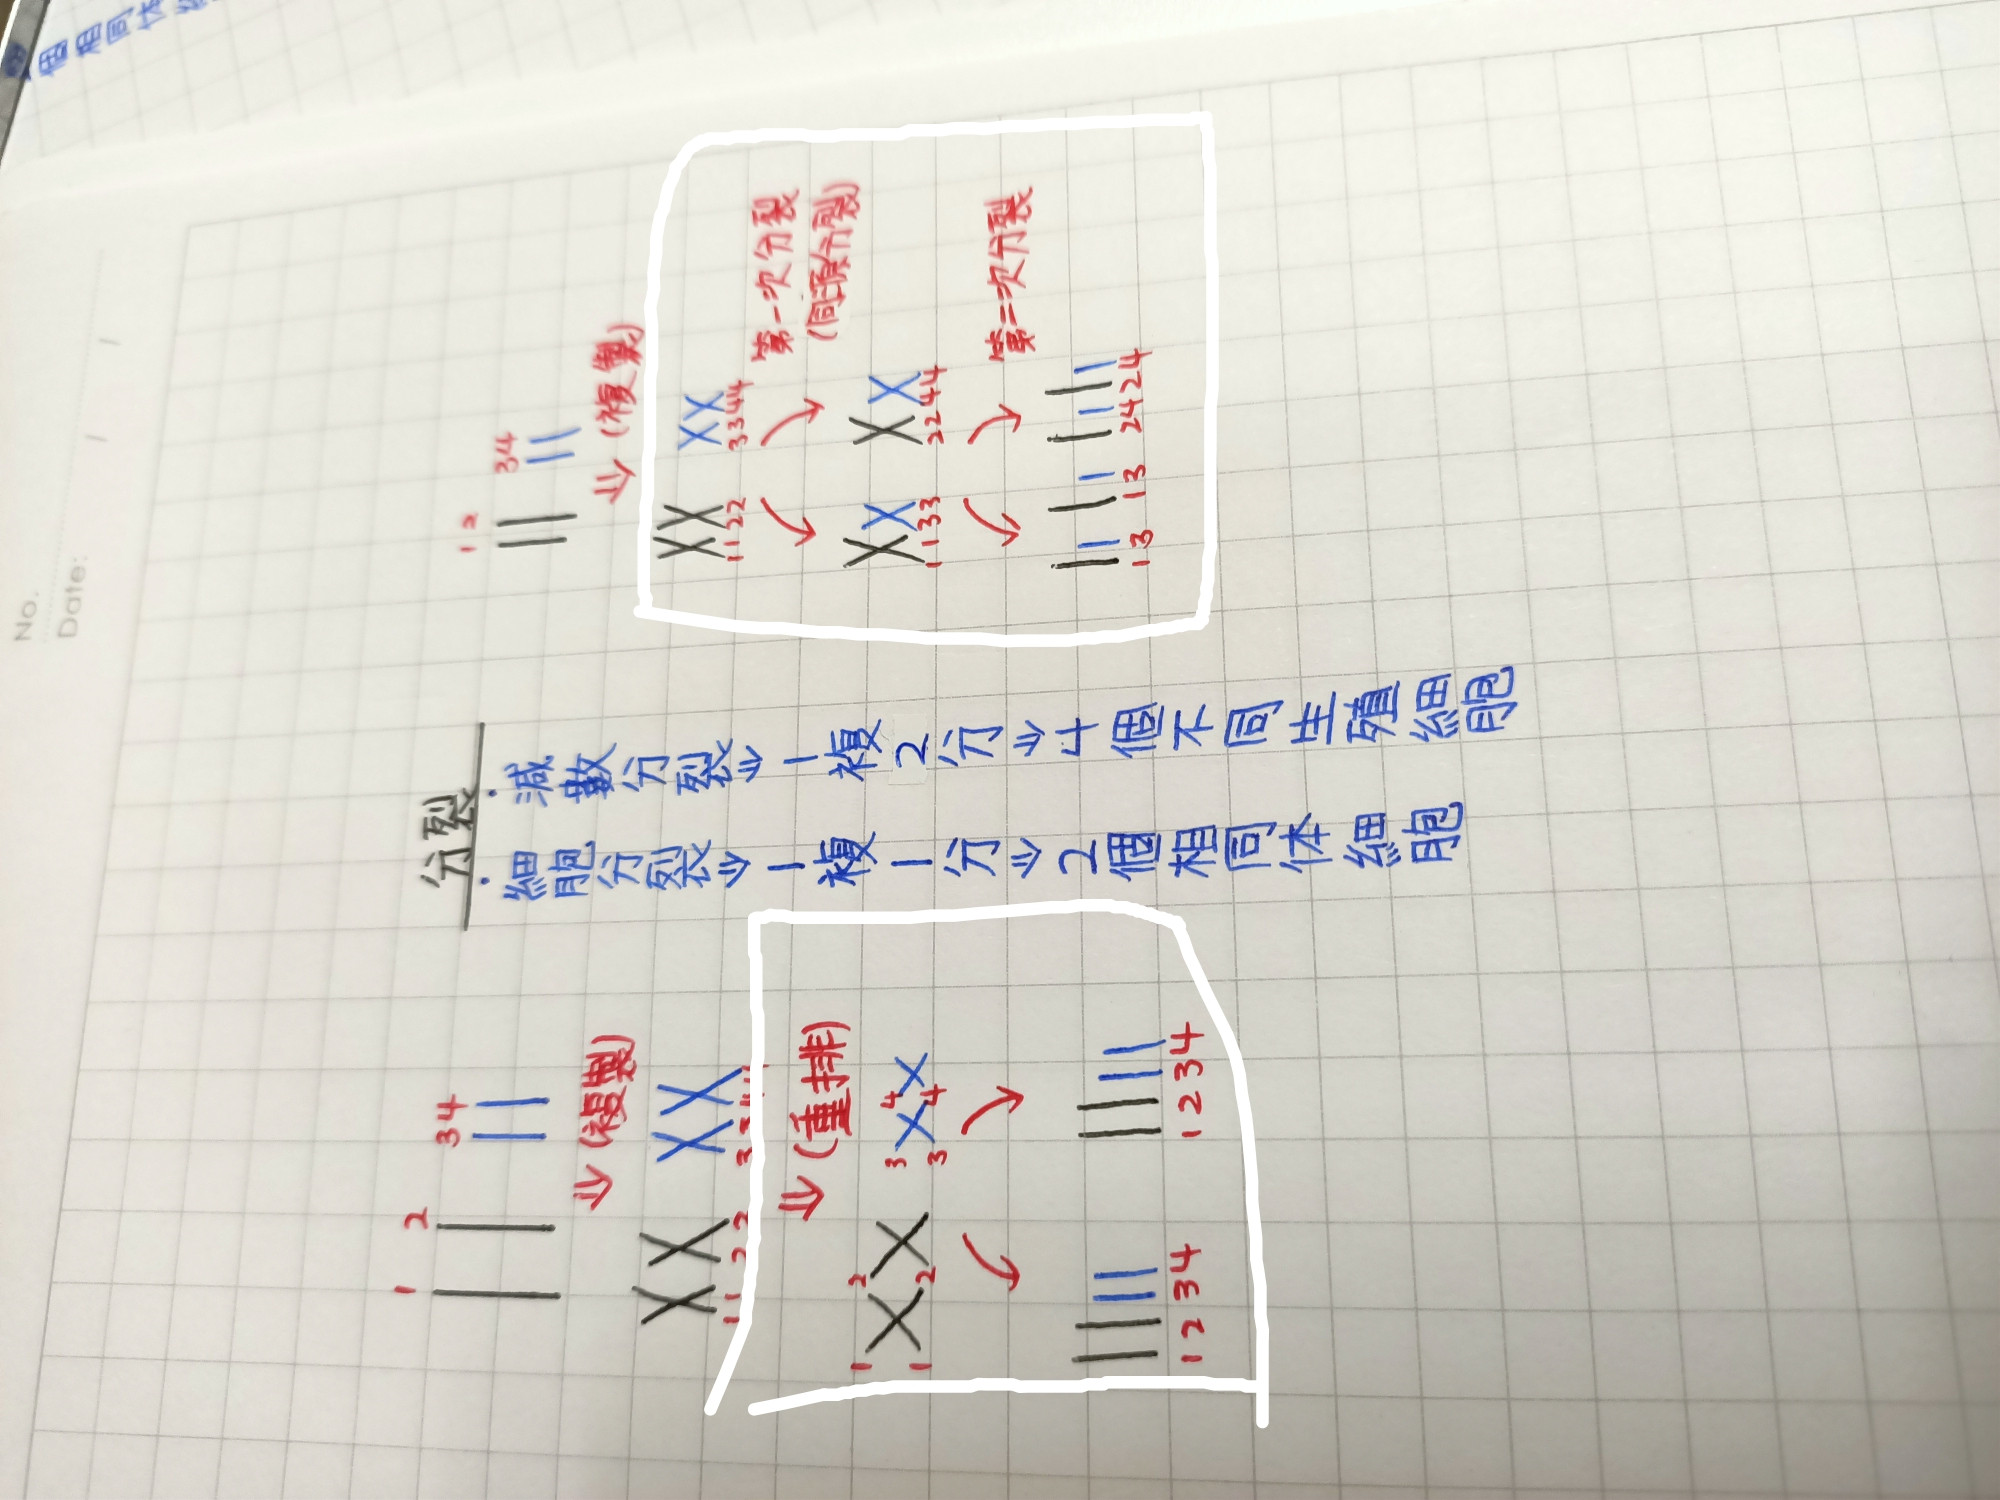 個相同体
No.
Date: / /
分裂
·細胞分裂⇒1複1分⇒2個相同体細胞
·減數分裂⇒1複2分⇒4個不同生殖細胞
1 2 34
⇓(複製)
11 22 33
⇓(重排)
1 2 3 4
1 2 3 4
1 2 3 4 1 2 3 4
1 2 34
⇓(複製)
11 22 33 44
第一次分裂
(同源分裂)
1133 2244
第二次分裂
13 13 24 24